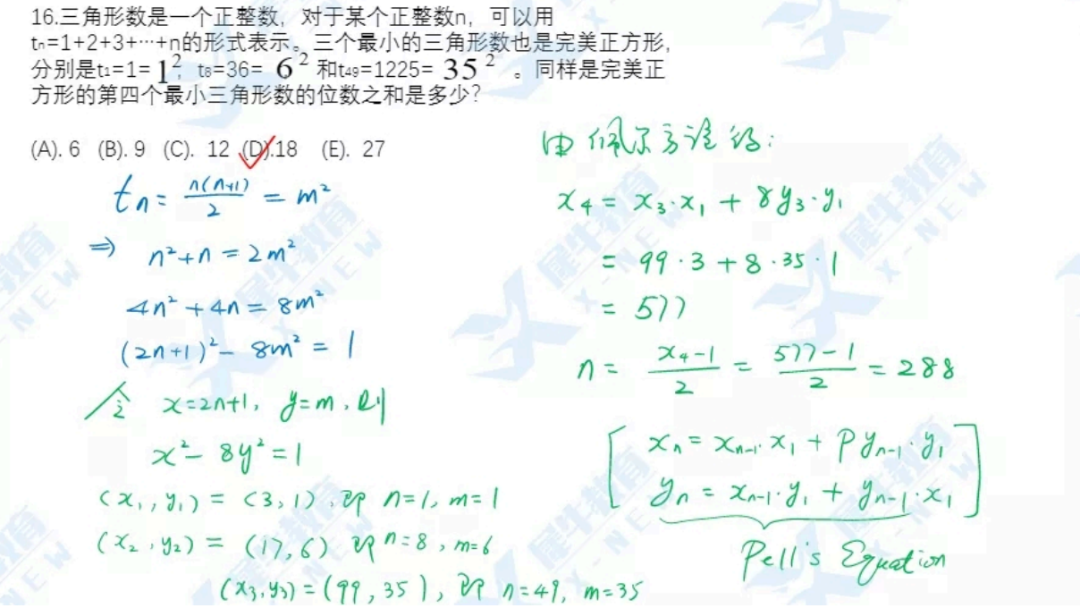 16.三角形数是一个正整数，对于某个正整数n，可以用
tₙ=1+2+3+···+n的形式表示。三个最小的三角形数也是完美正方形，
分别是t₁=1=1²; t₈=36= 6² 和t₄₉=1225= 35² 。同样是完美正
方形的第四个最小三角形数的位数之和是多少?
(A). 6 (B). 9 (C). 12 (D).18 (E). 27
tₙ = n(n+1)/2 = m²
⇒ n²+n = 2m²
4n² + 4n = 8m²
(2n+1)² - 8m² = 1
令 x=2n+1, y=m, 则
x² - 8y² = 1
(x₁, y₁) = (3,1), 即 n=1, m=1
(x₂, y₂) = (17,6) 即 n=8, m=6
(x₃,y₃) = (99,35), 即 n=49, m=35
由佩尔方程得:
x₄ = x₃·x₁ + 8y₃·y₁
= 99·3 + 8·35·1
= 577
n = (x₄-1)/2 = (577-1)/2 = 288
xₙ = xₙ₋₁·x₁ + Pyₙ₋₁·y₁
yₙ = xₙ₋₁·y₁ + yₙ₋₁·x₁
Pell's Equation
犀牛教育
X-NEW